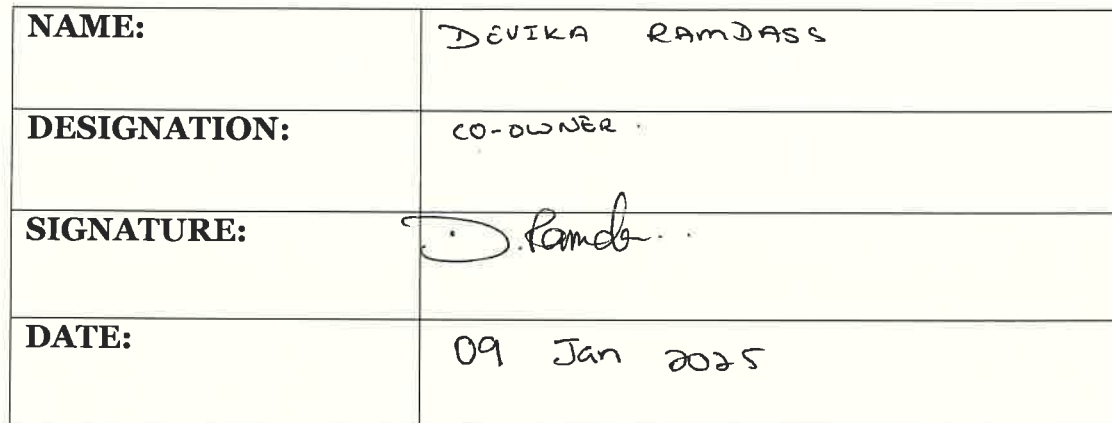 NAME: DEVIKA RAMDASS
DESIGNATION: CO-OWNER.
SIGNATURE: D. Ramda..
DATE: 09 Jan 2025